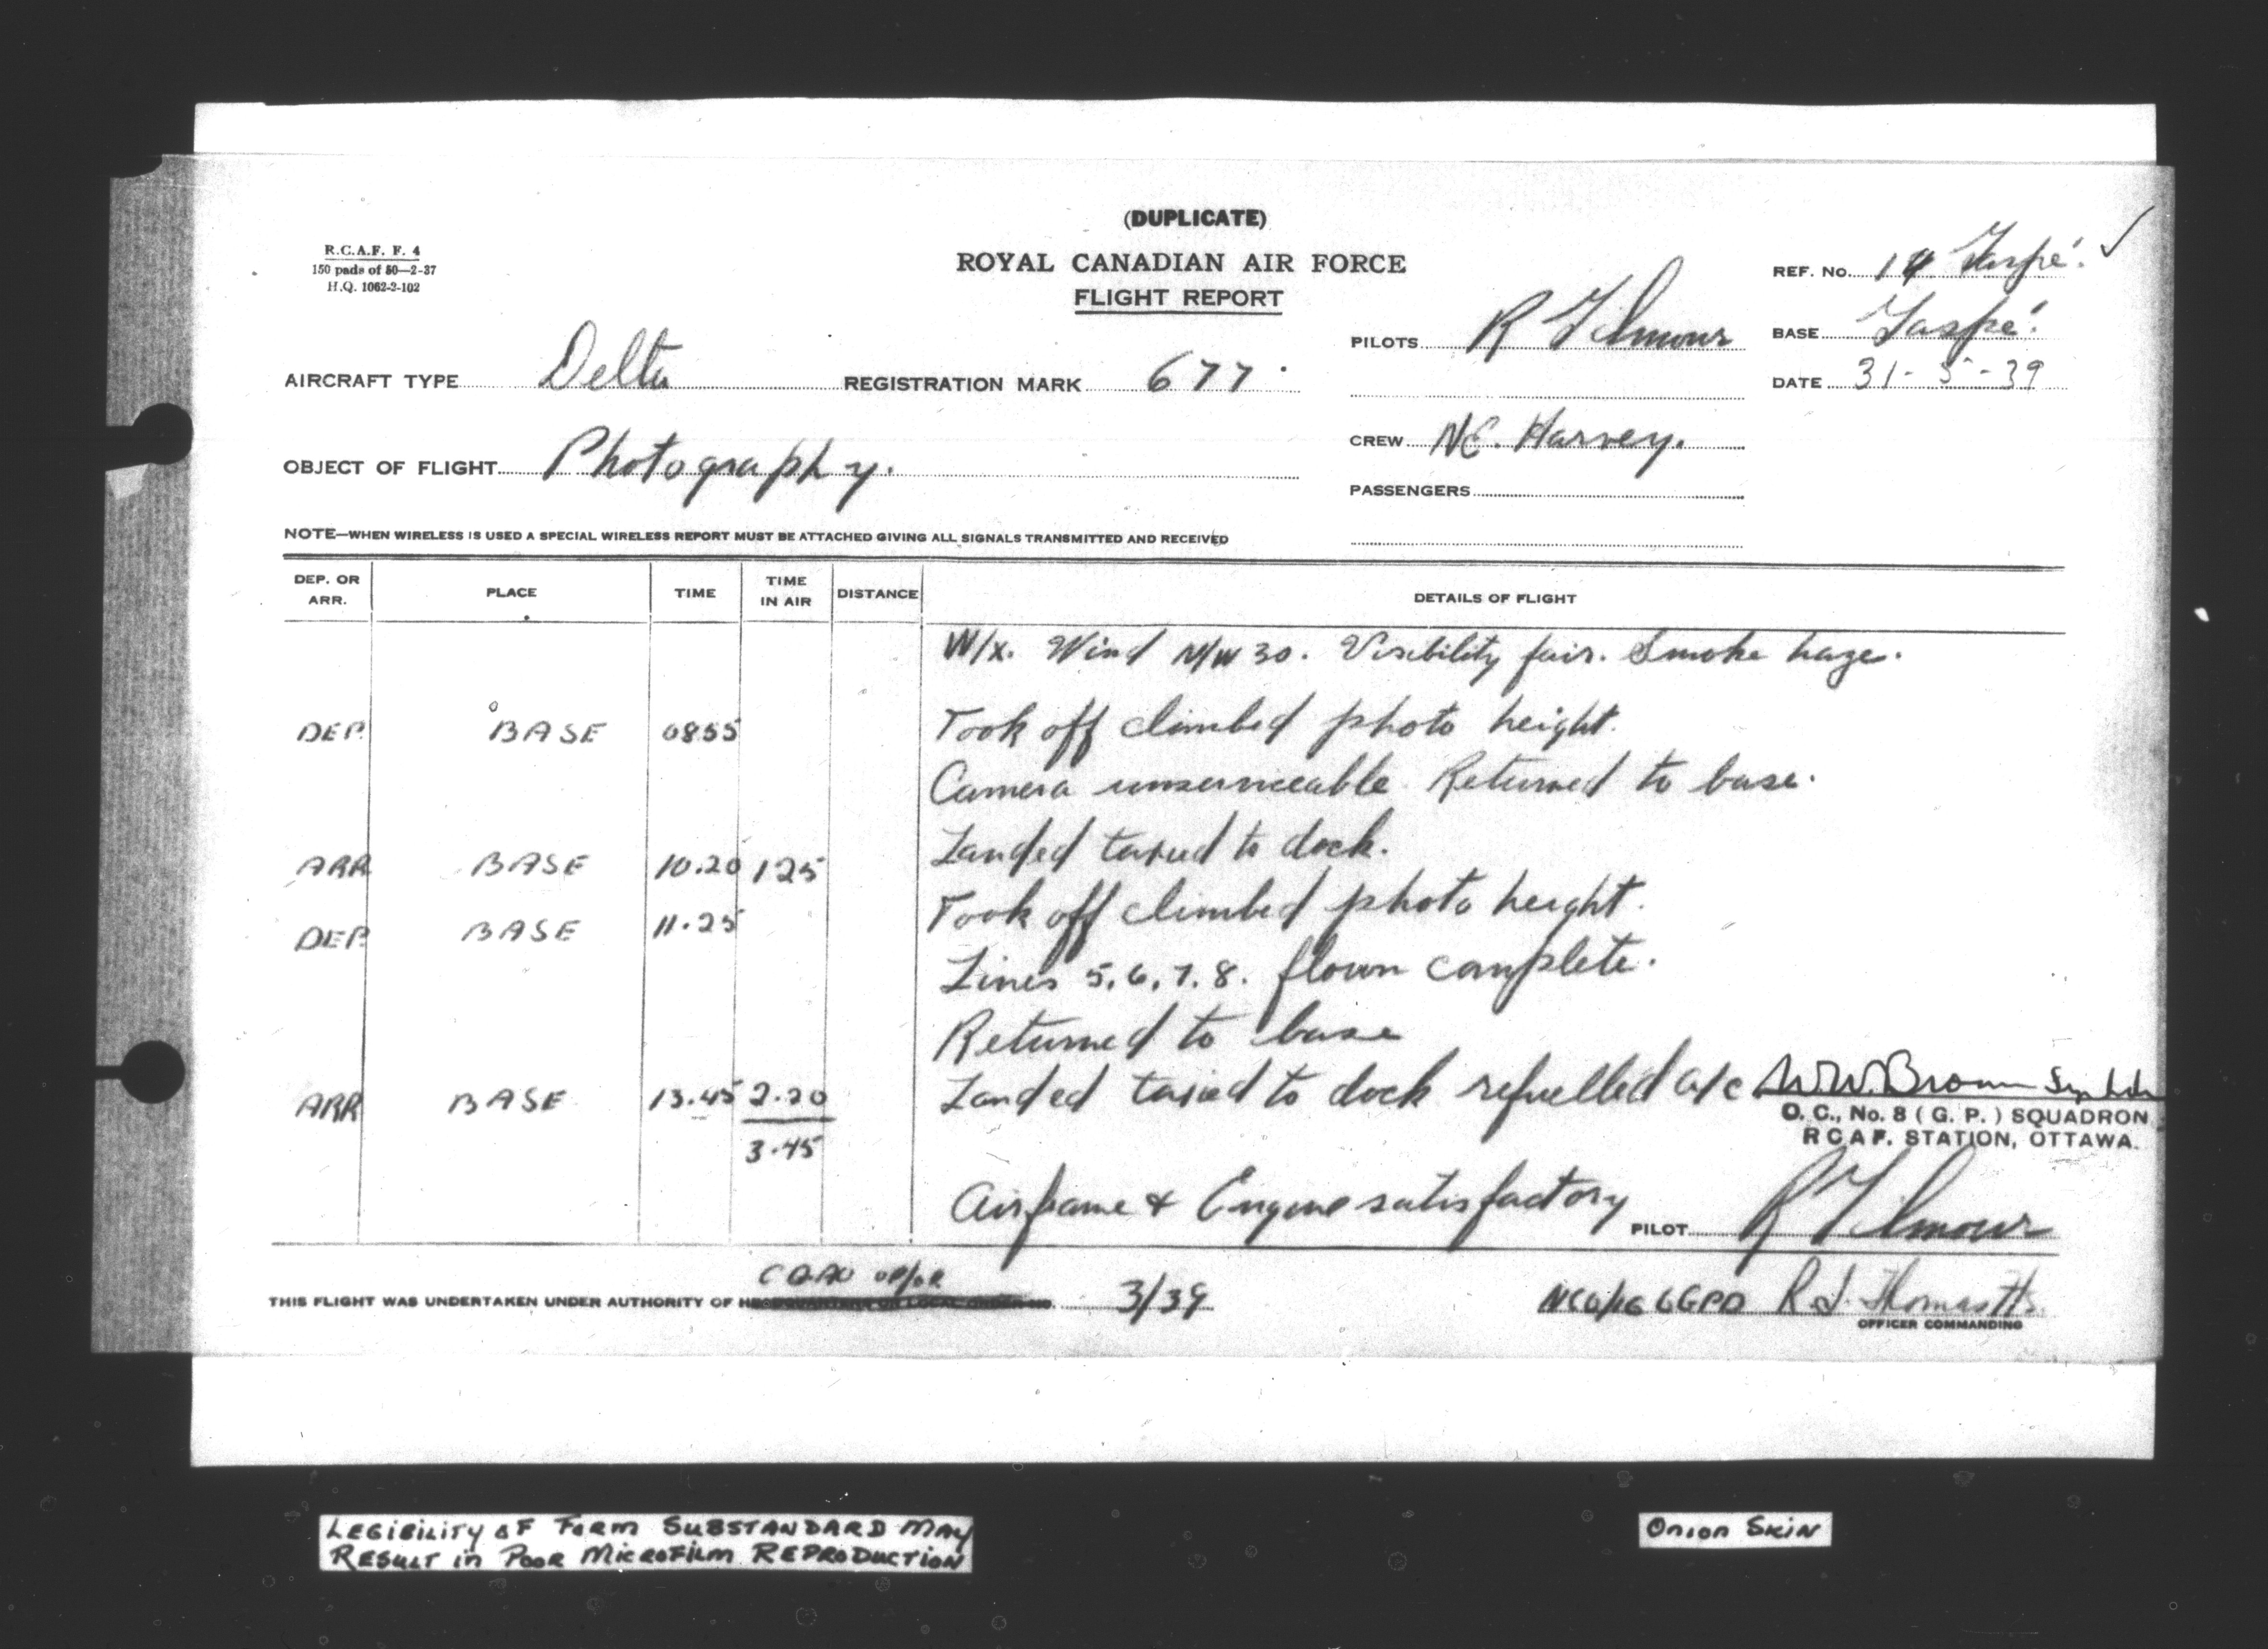 (DUPLICATE)
ROYAL CANADIAN AIR FORCE
FLIGHT REPORT
R.C.A.F. F. 4
150 pads of 50—2-37
H.Q. 1062-2-102
REF. No. 14 Gaspé.
PILOTS R Gilmour
BASE Gaspé.
AIRCRAFT TYPE Delta REGISTRATION MARK 677
DATE 31-5-39
CREW NE. Harvey.
OBJECT OF FLIGHT Photography.
PASSENGERS
NOTE—WHEN WIRELESS IS USED A SPECIAL WIRELESS REPORT MUST BE ATTACHED GIVING ALL SIGNALS TRANSMITTED AND RECEIVED
DEP. OR ARR. PLACE TIME TIME IN AIR DISTANCE DETAILS OF FLIGHT
W/x. Wind N/W 30. Visibility fair. Smoke haze.
DEP. BASE 0855 Took off climbed photo height.
Camera unserviceable Returned to base.
ARR BASE 10.20 125 Landed taxied to dock.
DEP. BASE 11.25 Took off climbed photo height.
Lines 5, 6, 7, 8. flown complete.
Returned to base
ARR BASE 13.45 2.20 Landed taxied to dock refuelled a/c W.W. Brown
3.45
O. C., No. 8 ( G. P. ) SQUADRON
R C A F. STATION, OTTAWA.
Airframe & Engine satisfactory PILOT R Gilmour
THIS FLIGHT WAS UNDERTAKEN UNDER AUTHORITY OF 3/39
R.I. Thomas
OFFICER COMMANDING
LEGIBILITY OF FORM SUBSTANDARD MAY
RESULT in POOR MICROFILM REPRODUCTION
Onion Skin